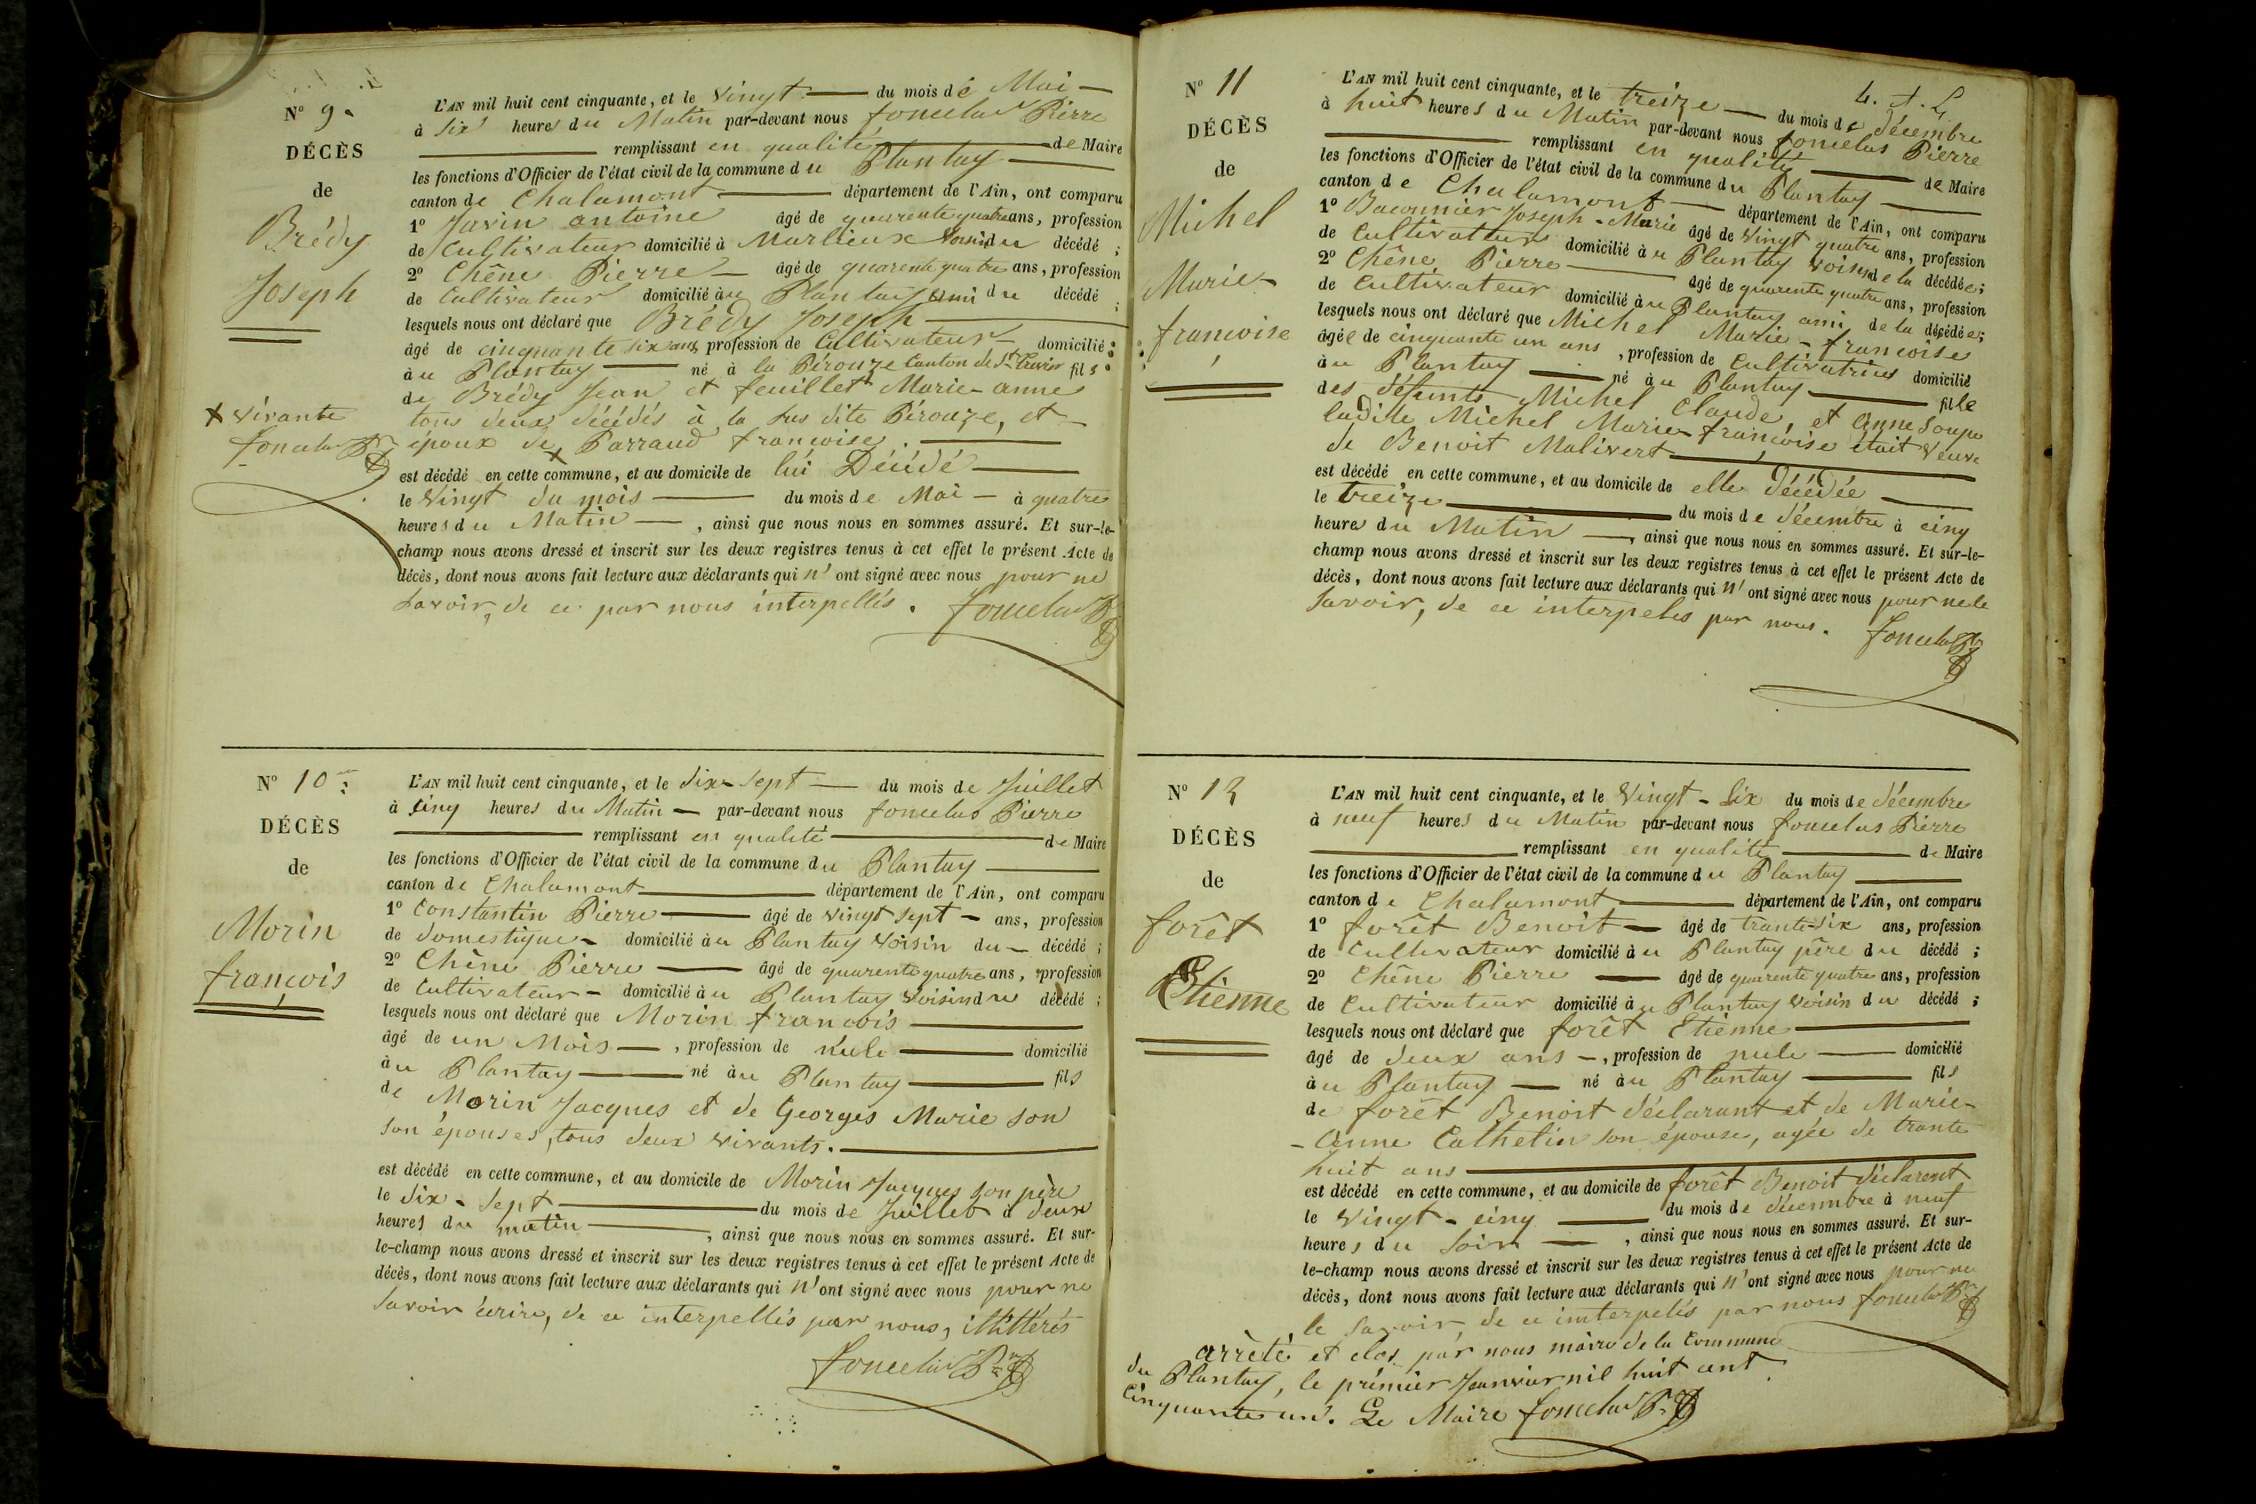 N° 9.
DÉCÈS
de
Brédy
Joseph
x vivante
foncelas Pre
L'AN mil huit cent cinquante, et le vingt du mois de Mai
à six heures du Matin par-devant nous foncelas Pierre
remplissant en qualité de Maire
les fonctions d'Officier de l'état civil de la commune du Plantay
canton de Chalamont département de l'Ain, ont comparu
1° Javin antoine âgé de quarente quatre ans, profession
de Cultivateur domicilié à Marlieux voisin du décédé ;
2° Chêne Pierre âgé de quarente quatre ans, profession
de Cultivateur domicilié au Plantay ami du décédé ;
lesquels nous ont déclaré que Brédy Joseph
âgé de cinquante six ans, profession de Cultivateur domicilié
au Plantay né à la Pérouze Canton de St fils
de Brédy Jean et feuillet Marie-anne
tous deux décédés à la sus dite Pérouze, et
époux de x Parraud françoise.
est décédé en cette commune, et au domicile de lui Décédé
le vingt du mois du mois de Mai à quatre
heures du Matin , ainsi que nous nous en sommes assuré. Et sur-le-
champ nous avons dressé et inscrit sur les deux registres tenus à cet effet le présent Acte de
décès, dont nous avons fait lecture aux déclarants qui n' ont signé avec nous pour ne
savoir, de ce par nous interpellés. foncelas Pre
N° 10
DÉCÈS
de
Morin
françois
L'AN mil huit cent cinquante, et le dix-sept du mois de Juillet
à cinq heures du Matin par-devant nous foncelas Pierre
remplissant en qualité de Maire
les fonctions d'Officier de l'état civil de la commune du Plantay
canton de Chalamont département de l'Ain, ont comparu
1° Constantin Pierre âgé de vingt sept ans, profession
de domestique domicilié au Plantay voisin du décédé ;
2° Chêne Pierre âgé de quarente quatre ans, profession
de Cultivateur domicilié au Plantay voisin du décédé ;
lesquels nous ont déclaré que Morin françois
âgé de un Mois , profession de nule domicilié
au Plantay né au Plantay fils
de Morin Jacques et de Georges Marie son
son épouses, tous deux vivants.
est décédé en cette commune, et au domicile de Morin Jacques son père
le dix-sept du mois de Juillet à deux
heures du matin , ainsi que nous nous en sommes assuré. Et sur-
le-champ nous avons dressé et inscrit sur les deux registres tenus à cet effet le présent Acte de
décès, dont nous avons fait lecture aux déclarants qui n' ont signé avec nous pour ne
savoir écrire, de ce interpellés par nous, illittérés
foncelas Pre
N° 11
DÉCÈS
de
Michel
Marie-
françoise
L'AN mil huit cent cinquante, et le treize du mois de décembre
à huit heures du Matin par-devant nous foncelas Pierre
remplissant en qualité de Maire
les fonctions d'Officier de l'état civil de la commune du Plantay
canton de Chalamont département de l'Ain, ont comparu
1° Baconnier Joseph-Marie âgé de vingt quatre ans, profession
de Cultivatteur domicilié au Plantay voisin de la décédée;
2° Chêne Pierre âgé de quarente quatre ans, profession
de Cultivateur domicilié au Plantay ami de la décédée;
lesquels nous ont déclaré que Michel Marie-françoise
âgée de cinquante un ans , profession de Cultivatrice domicilié
au Plantay né au Plantay fille
des défunts Michel Claude, et Anne Soupe
ladite Michel Marie-françoise était veuve
de Benoit Malivert
est décédé en cette commune, et au domicile de elle décédée
le treize du mois de décembre à cinq
heure du Matin , ainsi que nous nous en sommes assuré. Et sur-le-
champ nous avons dressé et inscrit sur les deux registres tenus à cet effet le présent Acte de
décès, dont nous avons fait lecture aux déclarants qui n' ont signé avec nous pour ne le
savoir, de ce interpelés par nous. foncelas Pre
N° 12
DÉCÈS
de
forêt
Etienne
L'AN mil huit cent cinquante, et le vingt-six du mois de décembre
à neuf heures du Matin par-devant nous foncelas Pierre
remplissant en qualité de Maire
les fonctions d'Officier de l'état civil de la commune du Plantay
canton de Chalamont département de l'Ain, ont comparu
1° forêt Benoit âgé de trante-six ans, profession
de Cultivateur domicilié au Plantay père du décédé ;
2° Chêne Pierre âgé de quarente quatre ans, profession
de Cultivateur domicilié au Plantay voisin du décédé ;
lesquels nous ont déclaré que forêt Etienne
âgé de deux ans , profession de nule domicilié
au Plantay né au Plantay fils
de forêt Benoit déclarant et de Marie-
-Anne Cathelin son épouse, agée de trante
huit ans
est décédé en cette commune, et au domicile de forêt Benoit déclarent
le vingt-cinq du mois de décembre à neuf
heures du soir , ainsi que nous nous en sommes assuré. Et sur-
le-champ nous avons dressé et inscrit sur les deux registres tenus à cet effet le présent Acte de
décès, dont nous avons fait lecture aux déclarants qui n' ont signé avec nous pour ne
le savoir de ce interpelés par nous foncelas Pre
arrèté et clos par nous maire de la Commune
du Plantay, le prémier Janvier mil huit cent
Cinquante un. Le Maire foncelas Pre